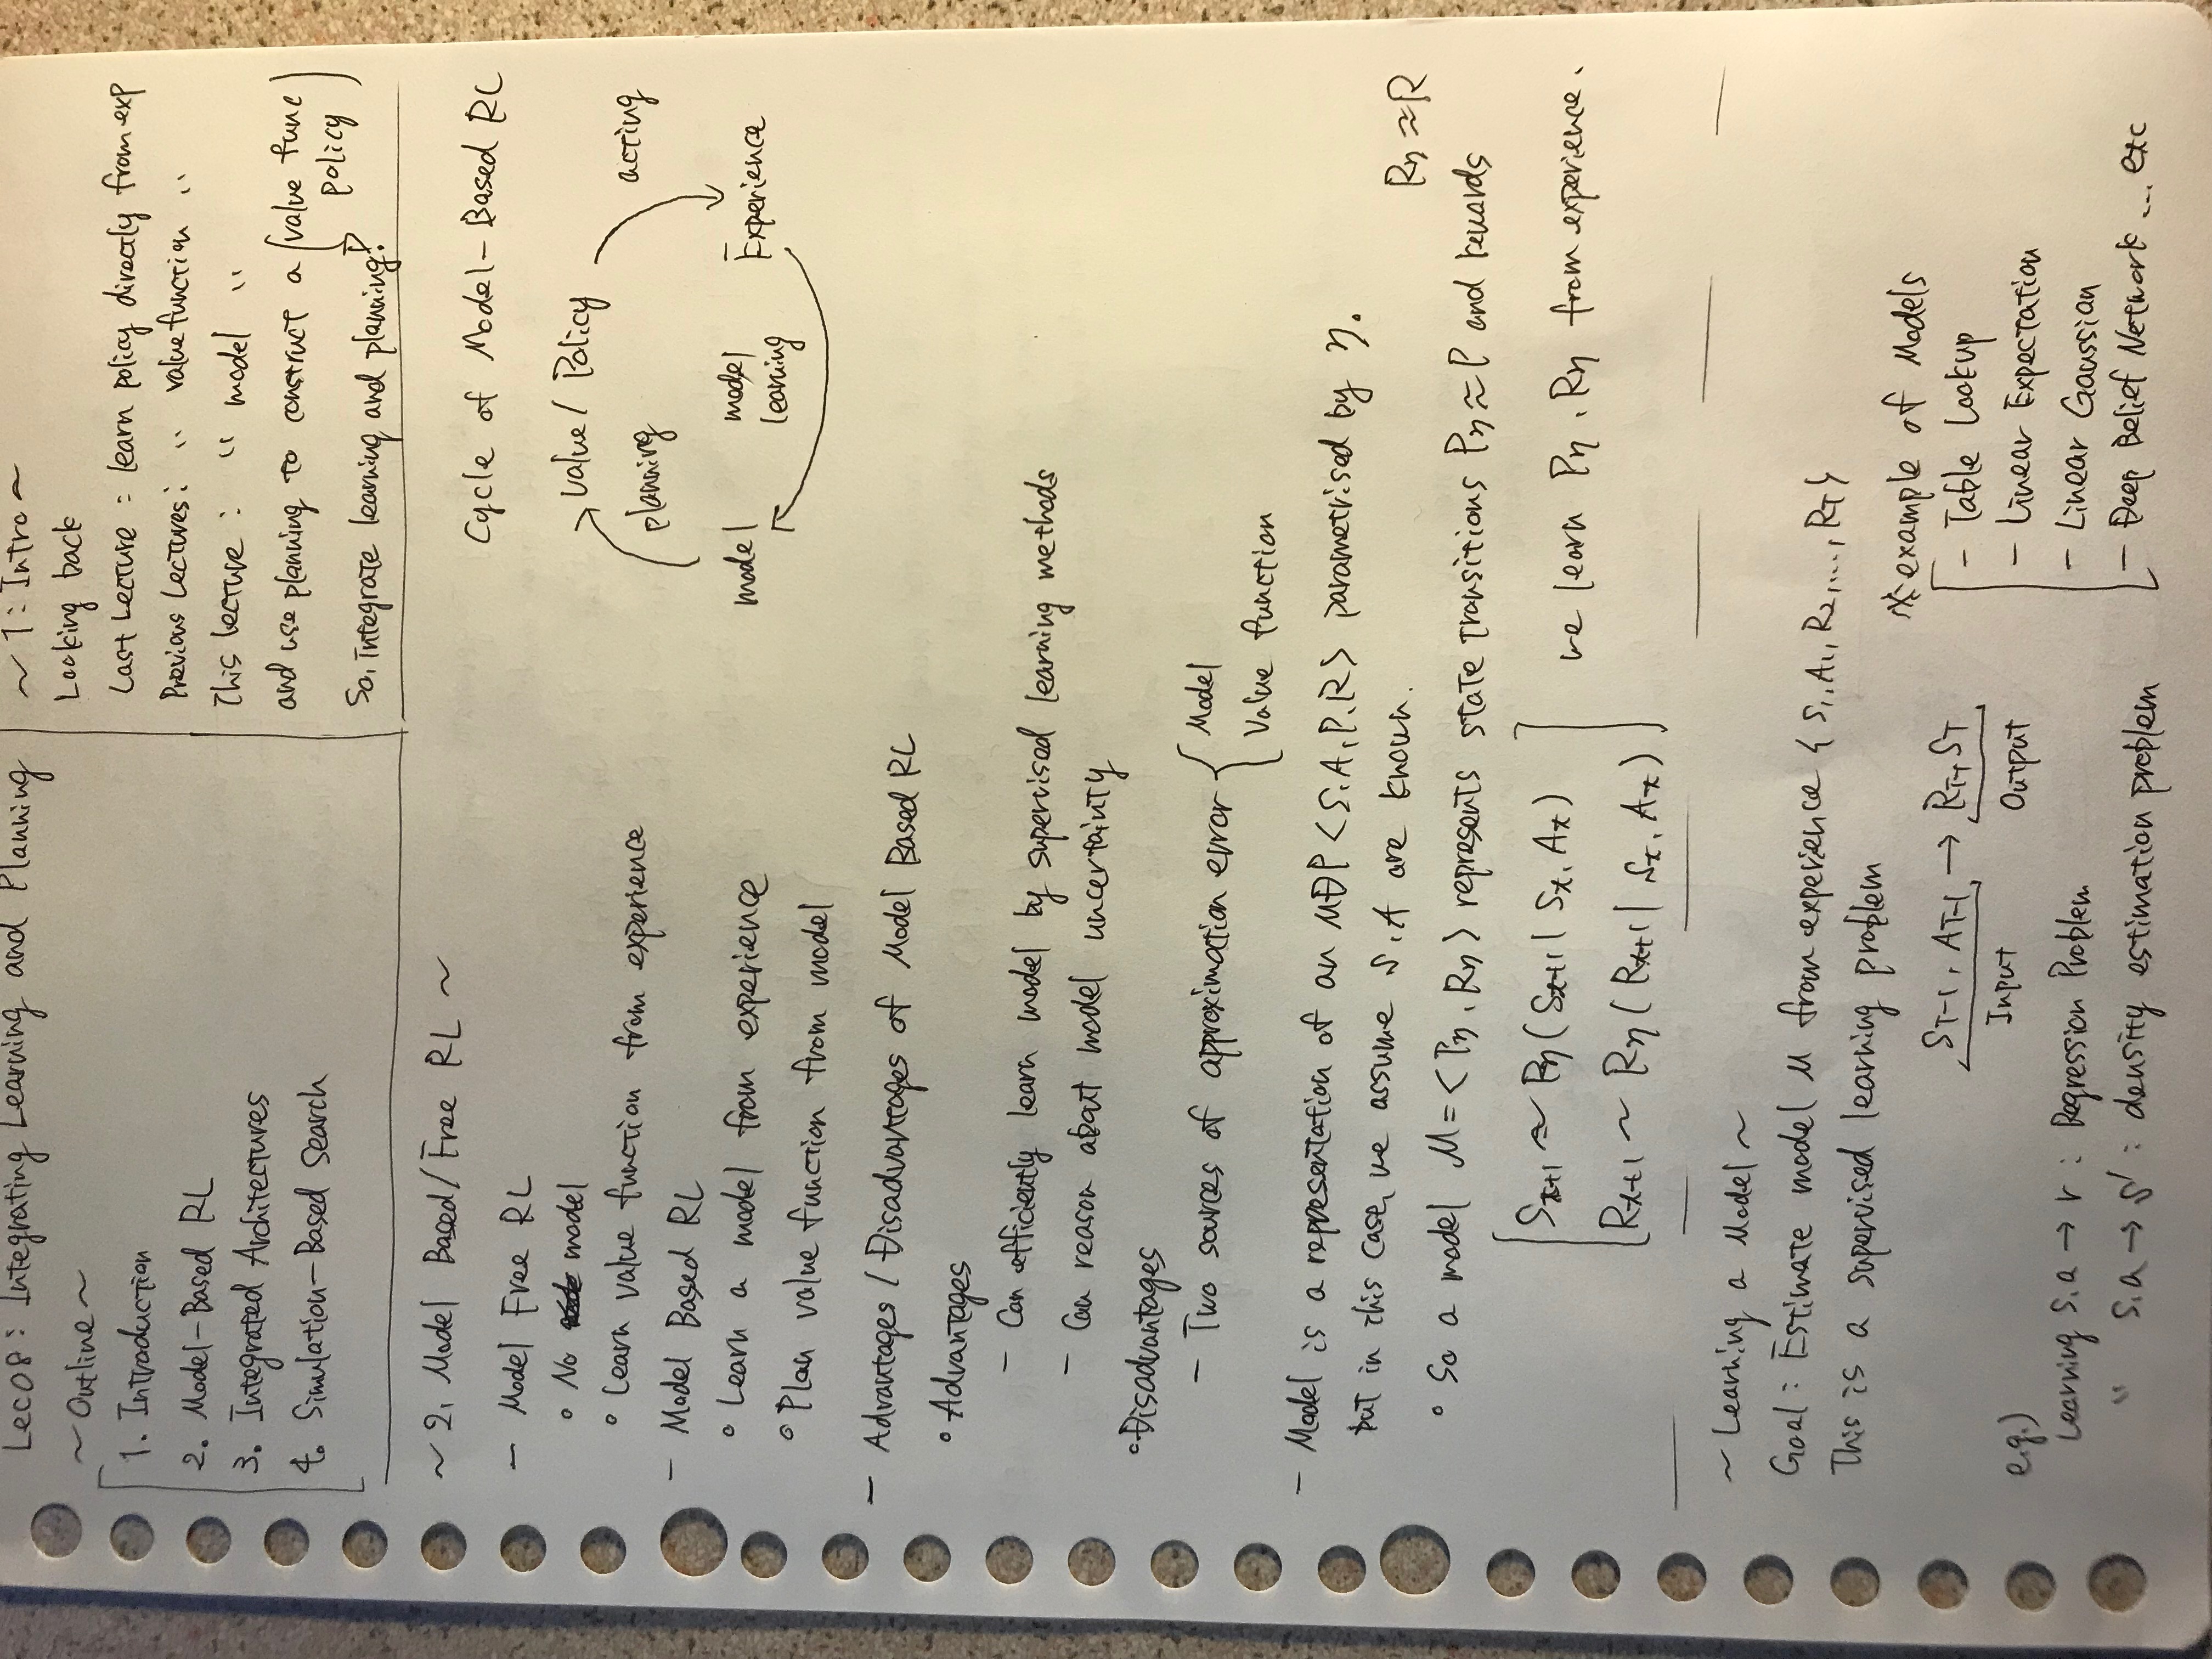 Lec08: Integrating Learning and Planning
~ Outline ~
1. Introduction
2. Model-Based RL
3. Integrated Architectures
4. Simulation-Based Search
~ 1: Intro ~
Looking back
Last Lecture: learn policy directly from exp
Previous Lectures: " value function "
This lecture: " model "
and use planning to construct a { value func
policy
So, integrate learning and planning.
~ 2. Model Based/Free RL ~
- Model Free RL
• No model
• Learn value function from experience
- Model Based RL
• Learn a model from experience
• Plan value function from model
Cycle of Model-Based RL
value/Policy
planning
acting
model
model
learning
Experience
- Advantages/Disadvantages of Model Based RL
• Advantages
- Can efficiently learn model by supervised learning methods
- Can reason about model uncertainty
• Disadvantages
- Two sources of approximation error { Model
Value function
- Model is a representation of an MDP <S,A,P,R> parametrised by η.
but in this case, we assume S,A are known.
• So a model M=<Pη,Rη> represents state transitions Pη≈P and rewards Rη≈R
St+1 ~ Pη(St+1|St,At)
Rt+1 ~ Rη(Rt+1|St,At)
we learn Pη, Rη from experience.
~ Learning a Model ~
Goal: Estimate model M from experience {S1,A1,R2,...,RT}
This is a supervised learning problem
ST-1, AT-1 → RT, ST
Input Output
e.g.)
Learning s,a → r : Regression Problem
" s,a → s' : density estimation problem
※ example of Models
- Table Lookup
- Linear Expectation
- Linear Gaussian
- Deep Belief Network ... etc